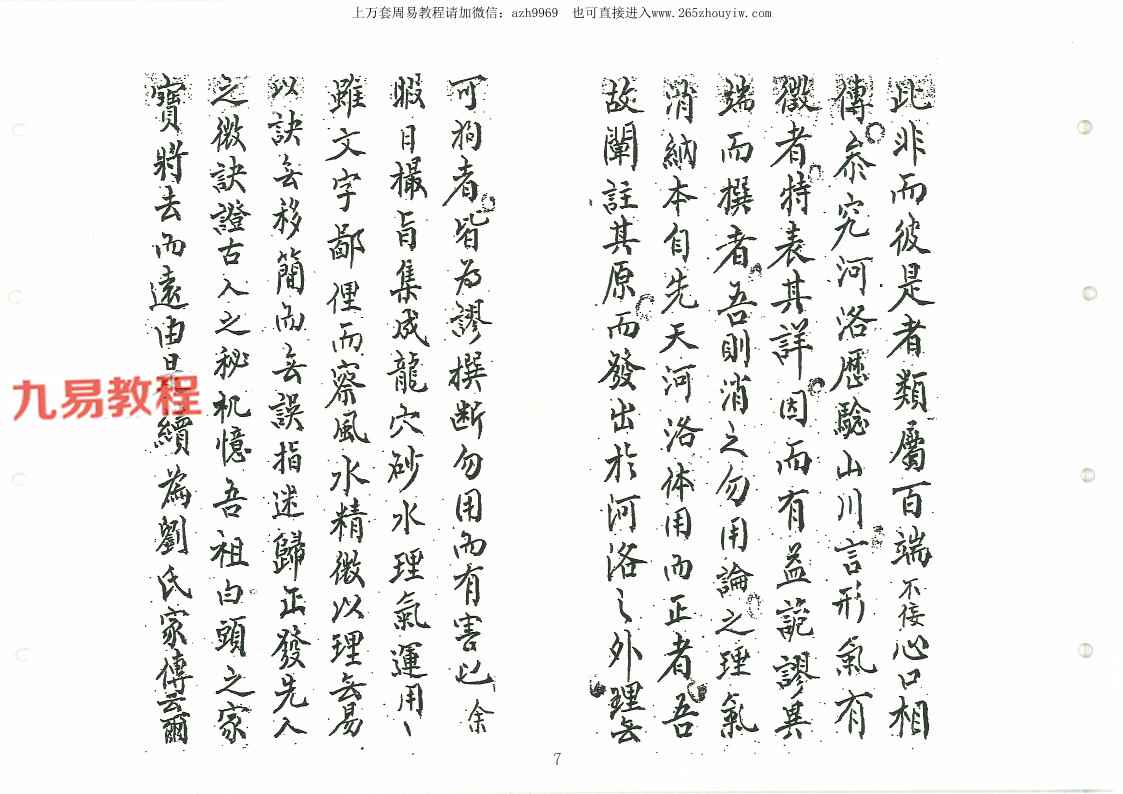 上万套周易教程请加微信：azh9969 也可直接进入www.265zhouyiw.com
此非而彼是者類屬百端不接心口相
傳参究河洛歷驗山川言形氣有
徵者特表其詳因而有益詭謬異
端而撰者吾則消之勿用論之理氣
消納本自先天河洛体用而正者吾
故闡註其原而發出於河洛之外理無
可狥者皆為謬撰断勿用而有害也余
暇日撮旨集成龍穴砂水理氣運用
雖文字鄙俚而察風水精微以理無易
以訣無移簡而無誤指迷歸正發先人
之微訣證古人之秘机憶吾祖白頭之家
寶將去而遠由是續為劉氏家傳云爾
九易教程
7